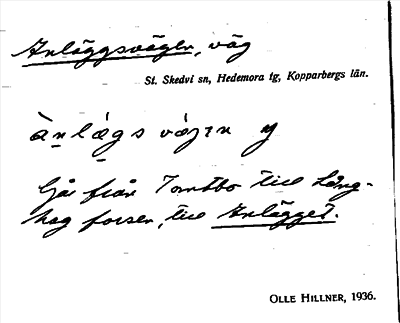 Anläggsvägen, väg
St. Skedvi sn, Hedemora tg, Kopparbergs län.
Går från Tomtbo till Lång-
hag forsen, till Anlägget.
OLLE HILLNER, 1936.